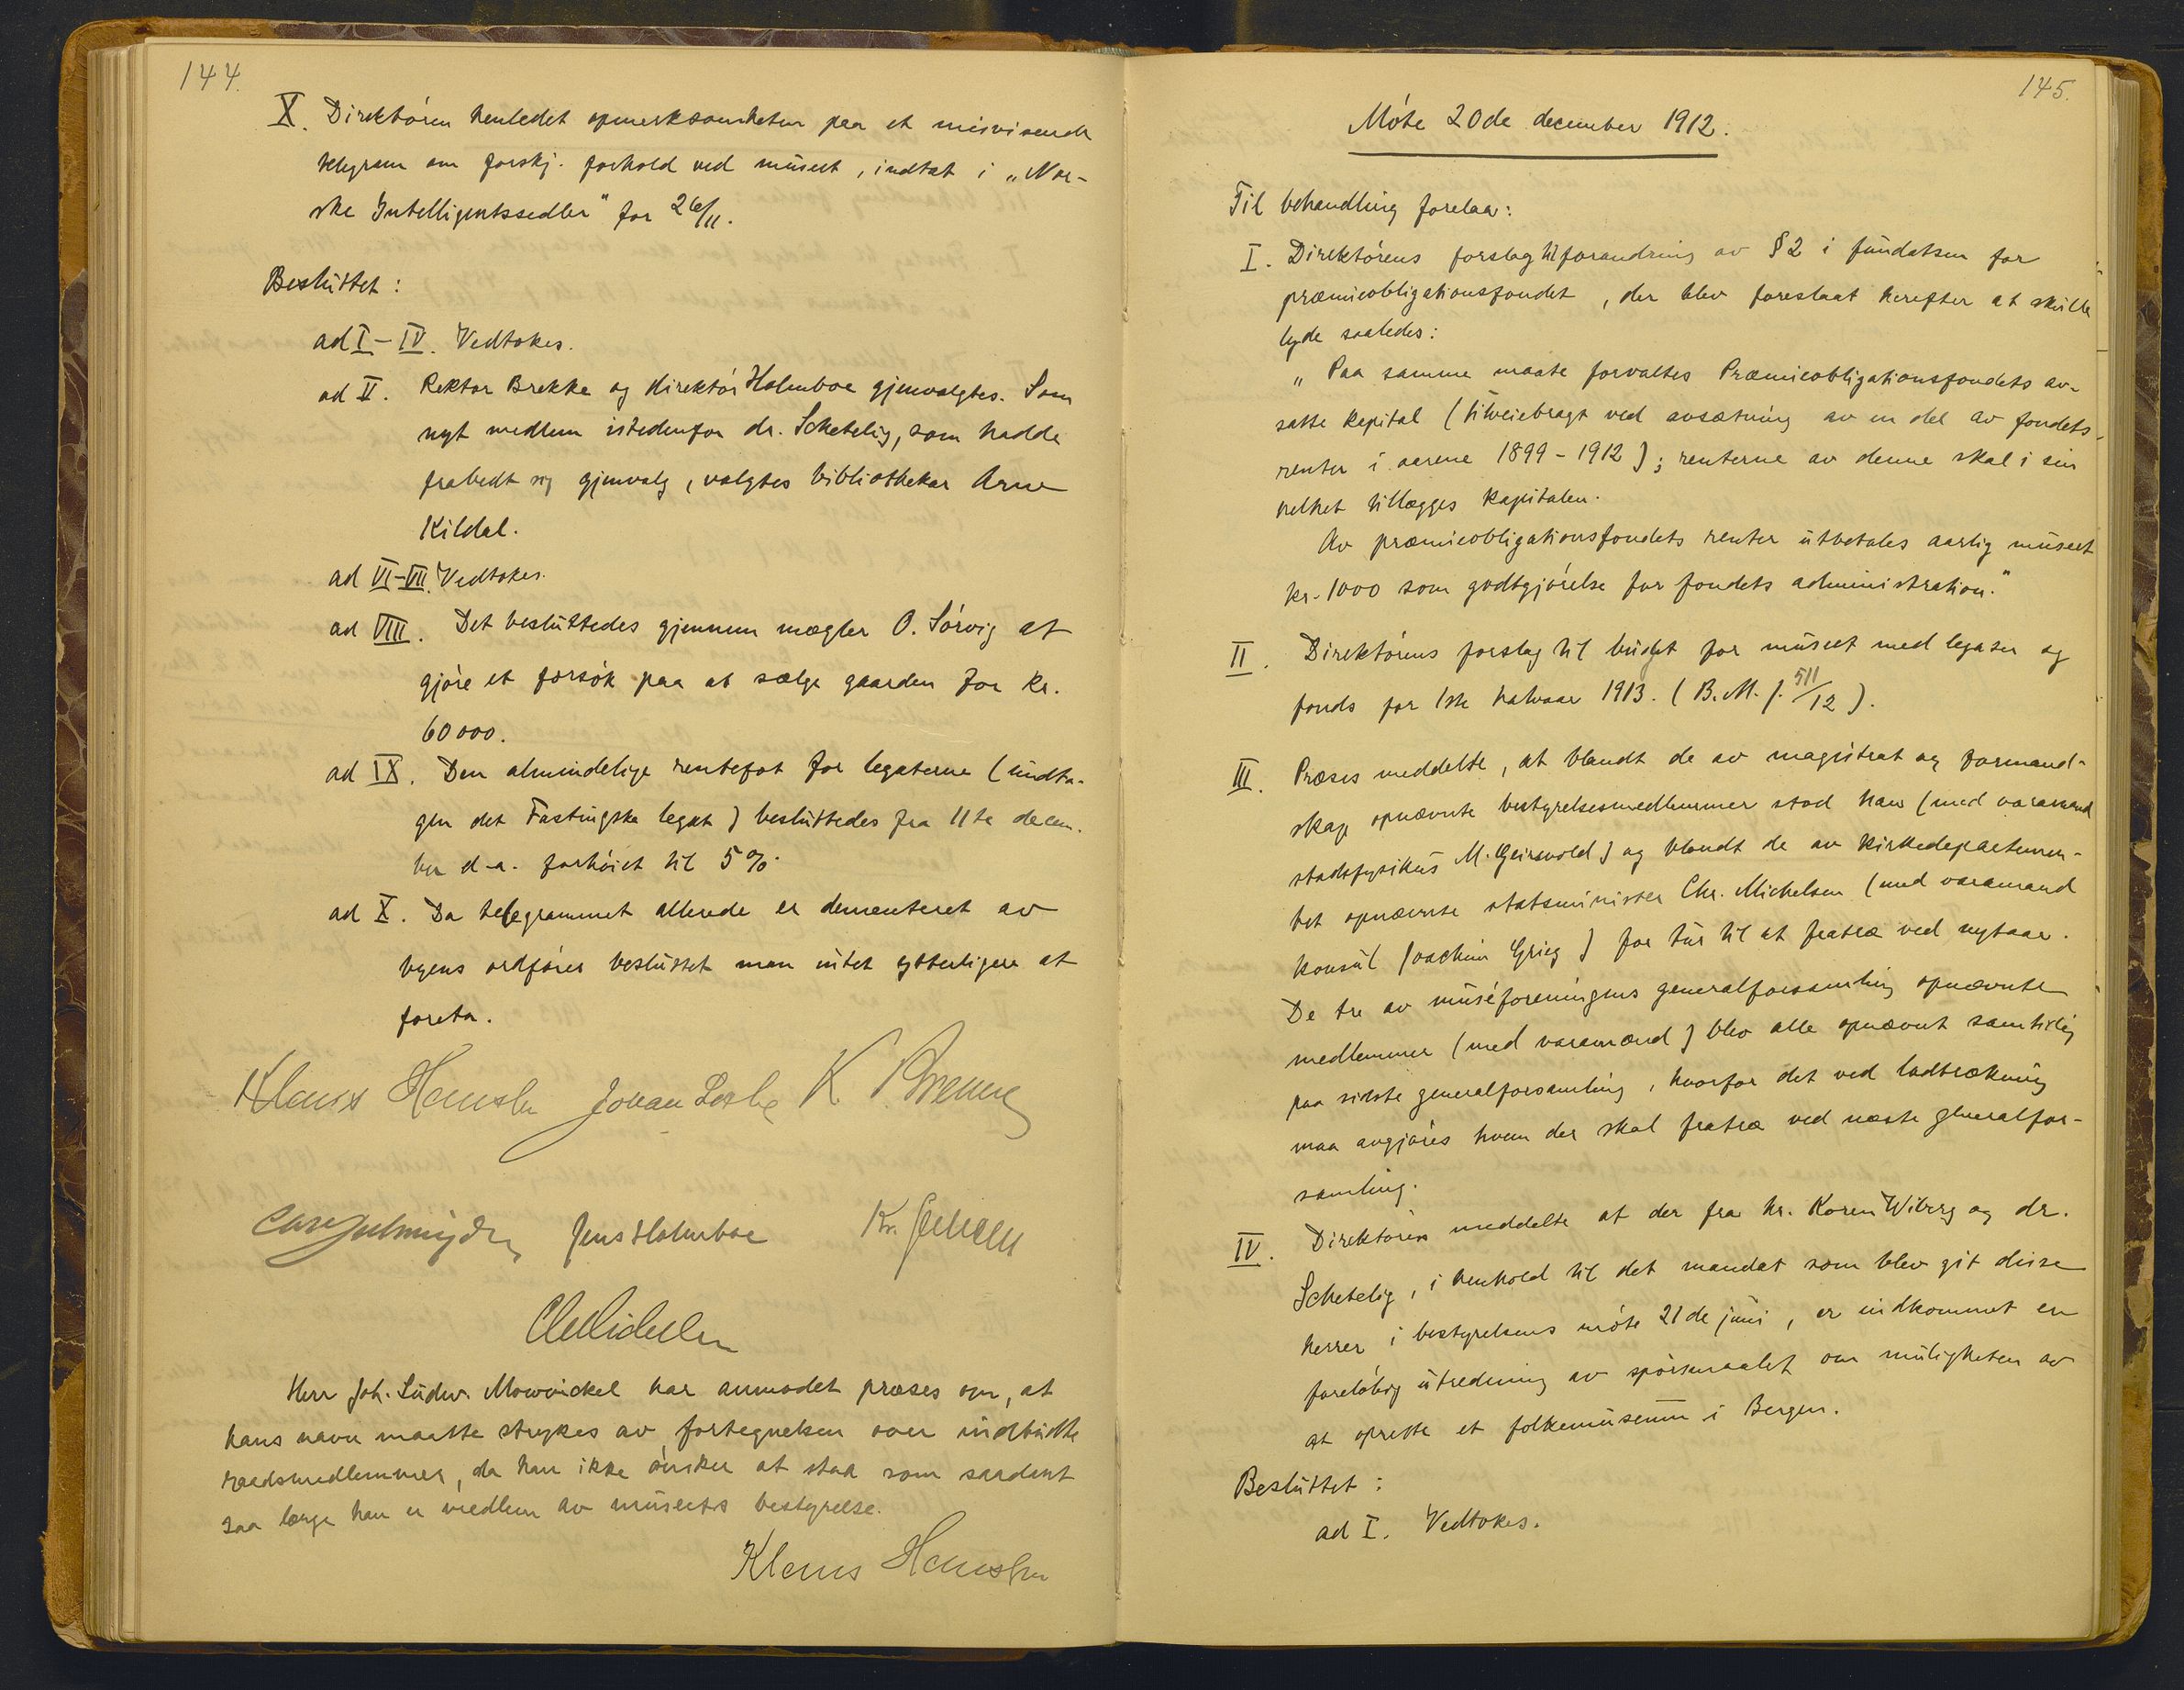 144.
X. Direktøren henledet opmerksomheten paa et misvisende
telegram om forskj. forhold ved museet, indtat i „Nor-
ske Intelligentssedler" for 26/11.
Besluttet:
ad I-IV. Vedtokes.
ad V. Rektor Brekke og direktør Holmboe gjenvalgtes. Som
nyt medlem istedenfor dr. Schetelig, som hadde
frabedt sig gjenvalg, valgtes bibliothekar Arne
Kildal.
ad VI-VII. Vedtokes.
ad VIII. Det besluttedes gjennem mægler O. Sørvig at
gjøre et forsøk paa at sælge gaarden for kr.
60000.
ad IX. Den almindelige rentefot for legaterne (undta-
gen det Fastingske legat) besluttedes fra 11te decem-
ber d-a. forhøiet til 5%.
ad X. Da telegrammet allerede er dementeret av
byens ordfører besluttet man intet ytterligere at
foreta.
Klaus Hanssen Johan K
Jens Holmboe Kr. Jensen
Herr Joh. Ludw. Mowinckel har anmodet præses om, at
hans navn maatte strykes av fortegnelsen over indbudte
raadsmedlemmer, da han ikke ønsker at staa som saadant
saa længe han er medlem av museets bestyrelse.
Klaus Hanssen
145.
Møte 20de december 1912.
Til behandling forelaa:
I. Direktørens forslag til forandring av §2 i fundatsen for
præmieobligationsfondet, der blev foreslaat herefter at skulle
lyde saaledes:
„Paa samme maate forvaltes Præmieobligationsfondets av-
satte kapital (tilveiebragt ved avsætning av en del av fondets
renter i aarene 1899-1912); renterne av denne skal i sin
helhet tillægges kapitalen.
Av præmieobligationsfondets renter utbetales aarlig museet
kr. 1000 som godtgjørelse for fondets administration."
II. Direktørens forslag til budget for museet med legater og
fonds for 1ste halvaar 1913. (B. M. j. 511/12).
III. Præses meddelte, at blandt de av magistrat og formand-
skap opnævnte bestyrelsesmedlemmer stod han (med varamand
stadsfysikus M. Geirsvold) og blandt de av kirkedepartemen-
tet opnævnte statsminister Chr. Michelsen (med varamand
konsul Joachim Grieg) for tur til at fratræ ved nytaar.
De tre av muséforeningens generalforsamling opnævnte
medlemmer (med varamænd) blev alle opnævnt samtidig
paa sidste generalforsamling, hvorfor det ved lodtrækning
maa avgjøres hvem der skal fratræ ved næste generalfor-
samling.
IV. Direktøren meddelte at der fra hr. Koren Wiberg og dr.
Schetelig, i henhold til det mandat som blev git disse
herrer i bestyrelsens møte 21de juni, er indkommet en
foreløbig utredning av spørsmaalet om muligheten av
at oprette et folkemuseum i Bergen.
Besluttet:
ad I. Vedtokes.